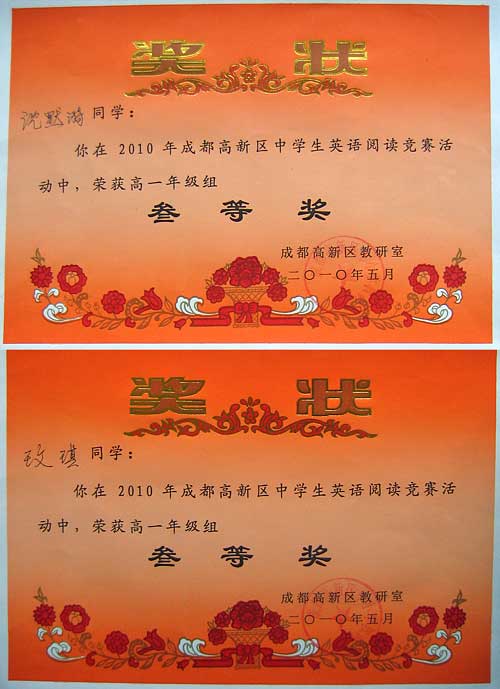 奖 状
沈默涵同学：
你在 2010 年成都高新区中学生英语阅读竞赛活
动中，荣获高一年级组
叁等奖
成都高新区教研室
二〇一〇年五月
奖 状
玟琪 同学：
你在 2010 年成都高新区中学生英语阅读竞赛活
动中，荣获高一年级组
叁等奖
成都高新区教研室
二〇一〇年五月